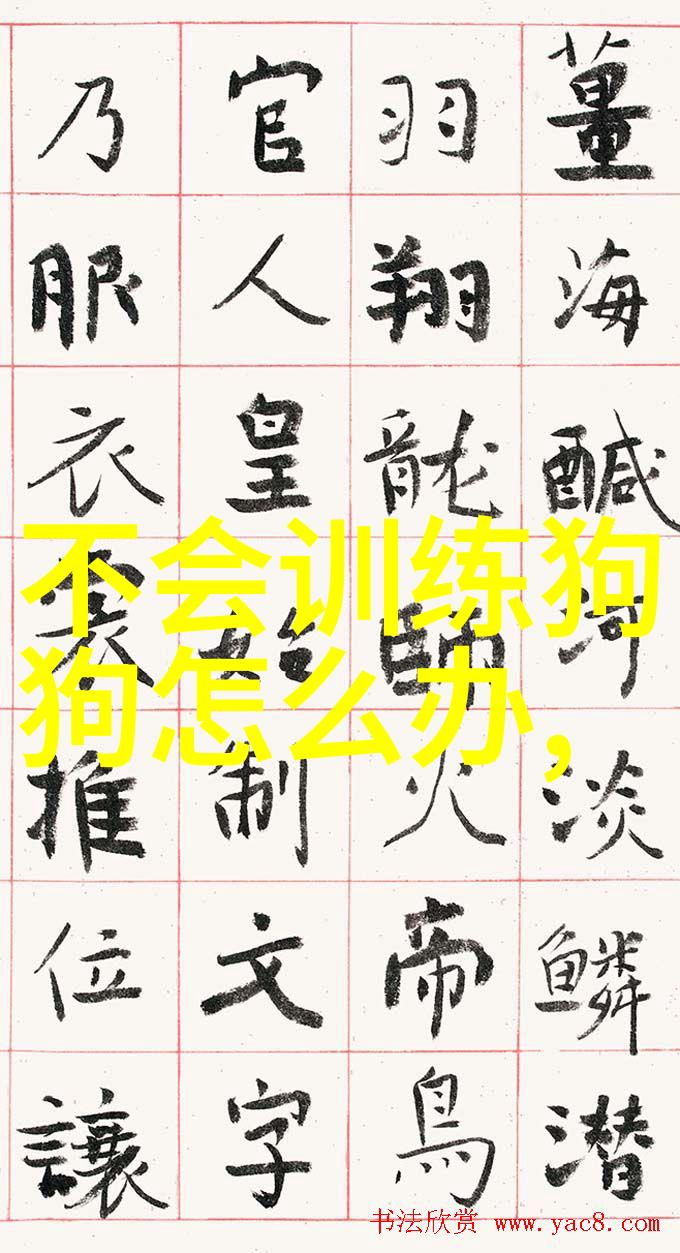 薑海醎河淡鳞潜
羽翔龍師火帝鳥
官人皇始制文字
乃服衣裳推位讓
不会训练狗
狗怎么办,
书法欣赏 www.yac8.com